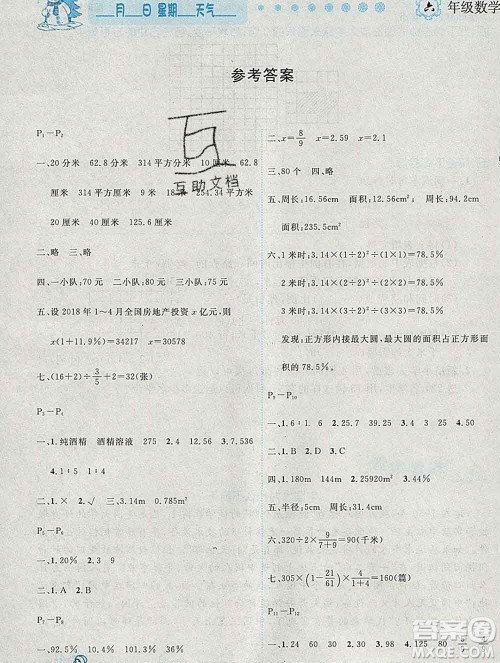 月 日 星期 天气
六 年级数学
参考答案
P₁－P₂
一、20分米 62.8分米 314平方分米 10厘米 62.8
厘米 314平方厘米 20厘米 62.8厘米
20厘米 40厘米
二、略 三、略
四、一小队：70元 二小队：80元
五、设2018年1～4月全国房地产投资x亿元，则
x(1+11.9%)=34219 x=30580
七、(16+2)÷3/5+2=32(张)
P₃－P₄
一、1.纯酒精 酒精溶液 275 2.4 12.56 3.7.536
4.1∶5
二、1.× 2.√ 三、3.14m 0.785m²
P₅－P₆
一、1.20% 2.3 9
二、1.A 2.B
P₇－P₈
一、92.5%
二、x=8/9 x=2.59 x=2.1
三、80个 四、略
五、周长：16.56cm 面积：12.56cm² 周长：
面积：235.5cm²
六、1米时：3.14×(1÷2)²÷(1×1)=78.5%
2米时：3.14×(2÷2)²÷(2×2)=78.5%
发现：正方形内接最大圆，最大圆的面积占正方形面
积的78.5%。
P₉－P₁₀
一、1.6∶1 6 2.25.7 3.90
二、1.B 2.D 3.D
四、1.200m 2.25920m² 3.44%
五、半径：5cm 周长：
六、320÷2×9/(7+9)=90(千米)
七、305×(1-21/61)×4/(1+4)=160(篇)
P₁₁－P₁₂
一、1.30 2. 3.98 4.125 80
互助文档
答案